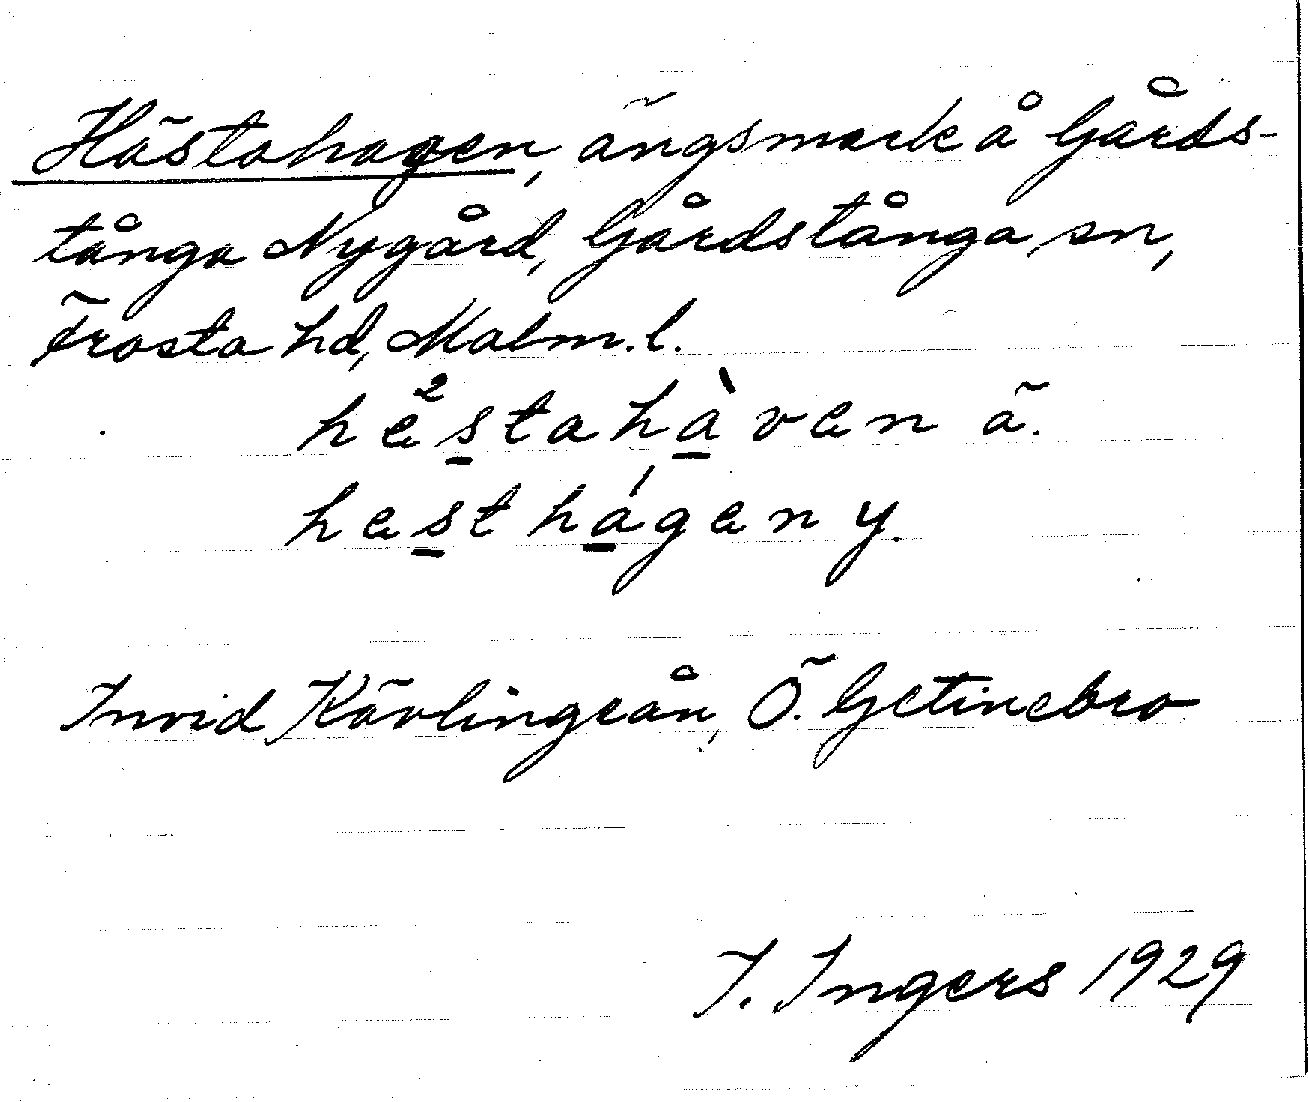 Hästahagen, ängsmark å Gårds-
tånga Nygård, Gårdstånga sn,
Frosta hd, Malm.l.
hæ²stahàvæn ä.
hæsthágæn y.
Invid Kävlingeån, Ö. Getinebro
I. Ingers 1929